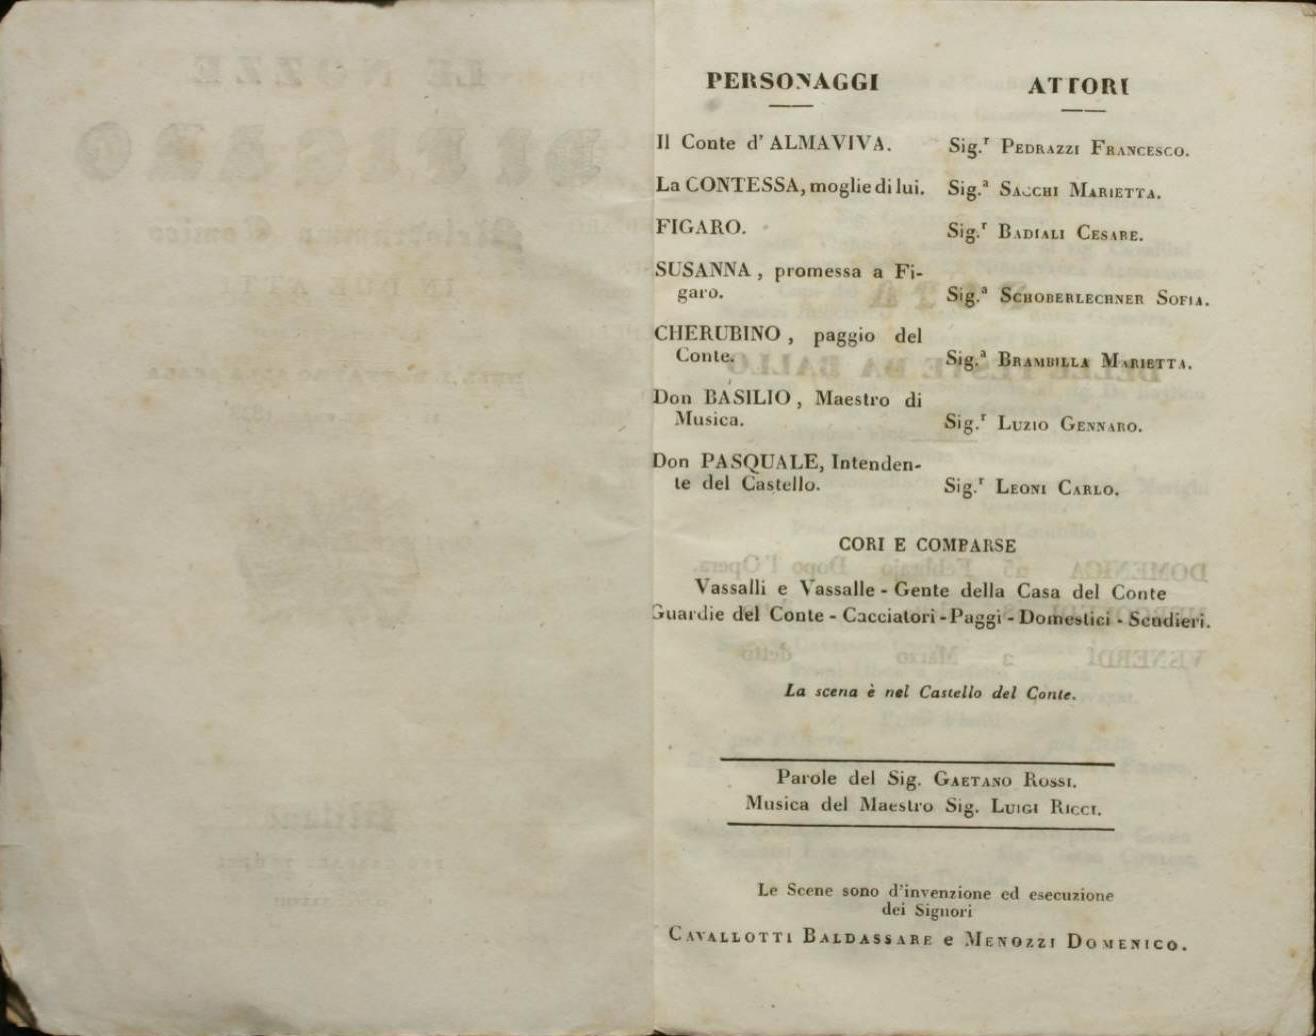 PERSONAGGI
ATTORI
Il Conte d' ALMAVIVA.
Sig.r PEDRAZZI FRANCESCO.
La CONTESSA, moglie di lui.
Sig.a SACCHI MARIETTA.
FIGARO.
Sig.r BADIALI CESARE.
SUSANNA, promessa a Fi-
garo.
Sig.a SCHOBERLECHNER SOFIA.
CHERUBINO, paggio del
Conte.
Sig.a BRAMBILLA MARIETTA.
Don BASILIO, Maestro di
Musica.
Sig.r LUZIO GENNARO.
Don PASQUALE, Intenden-
te del Castello.
Sig.r LEONI CARLO.
CORI E COMPARSE
Vassalli e Vassalle - Gente della Casa del Conte
Guardie del Conte - Cacciatori - Paggi - Domestici - Scudieri.
La scena è nel Castello del Conte.
Parole del Sig. GAETANO ROSSI.
Musica del Maestro Sig. LUIGI RICCI.
Le Scene sono d'invenzione ed esecuzione
dei Signori
CAVALLOTTI BALDASSARE e MENOZZI DOMENICO.